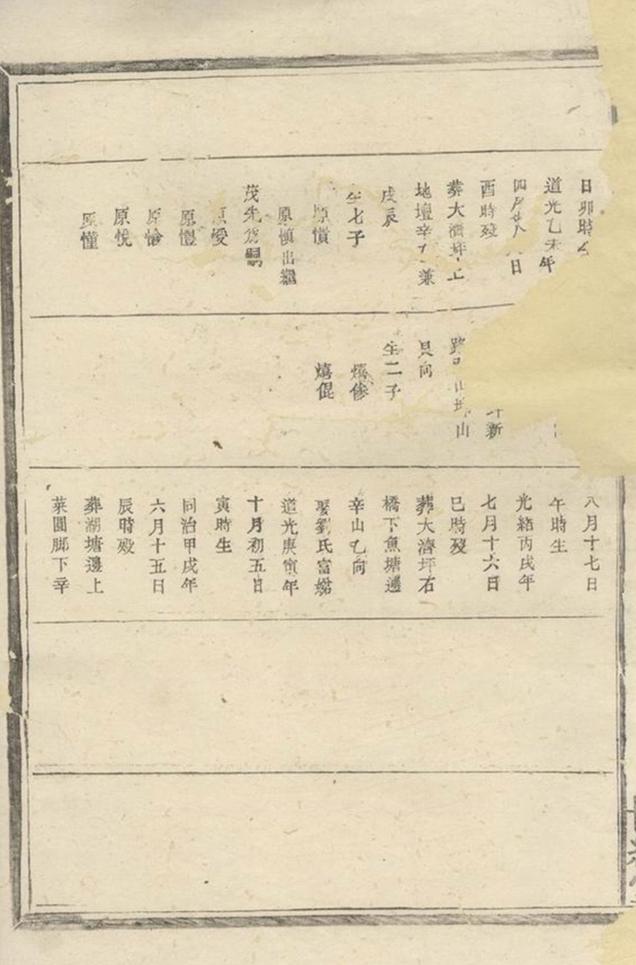 日卯時
道光乙未年
四月廿八日
酉時歿
葬大濟坪上
地壇辛乙兼
戌辰
生七子
原慎出繼
茂先為嗣
原愛
原體
原愉
原悅
原懂
路
山
新
艮向
生二子
熺倱
八月十七日
午時生
光緒丙戌年
七月十六日
巳時歿
葬大濟坪石
橋下魚塘邊
辛山乙向
娶劉氏富
道光庚寅年
十月初五日
寅時生
同治甲戌年
六月十五日
辰時歿
葬湖塘邊上
菜園脚下辛